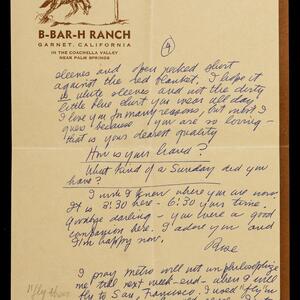 B-BAR-H RANCH
GARNET, CALIFORNIA
IN THE COACHELLA VALLEY
NEAR PALM SPRINGS
4
sleeves and open necked shirt
against the red blanket. I hope it
is white sleeves and not the dirty
little blue shirt you wear all day.
I love you for many reasons, but most I
guess because you are so loving -
that is your dearest quality
How is your hand?
What kind of a Sunday did you
have?
I wish I knew where you are now.
It is 3:30 here - 6:30 your time.
Goodbye darling - you were a good
companion here. I adore you and
I'm happy now.
I pray Metro will not philosophize
me till next week-end - when I will
fly to San Francisco. I used "fly in